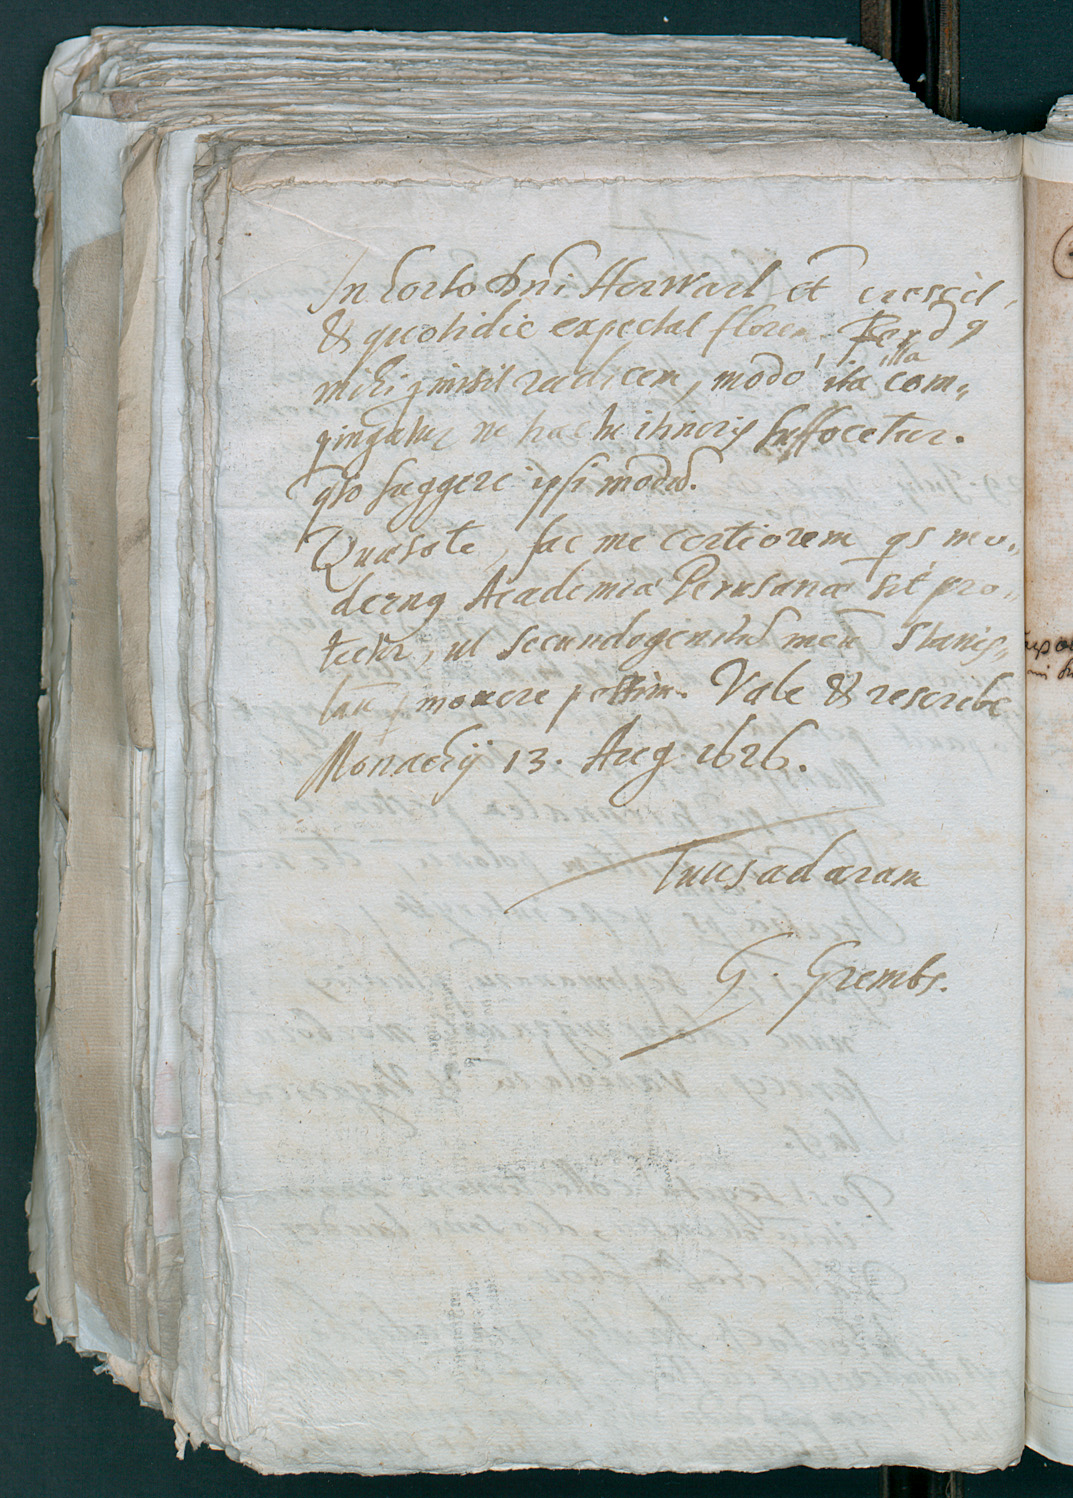 In horto Dnī Herwart et crescit,
& quotidie expectat florem.
mihi radicem, modo ita illa com„
pingatur ne hac he itineris suffocetur.
qso suggere ipsi modū.
Quæso te, fac me certiorem qs mo„
dernq Academiæ Perusanæ sit pro„
tector, ut secundogenitū meū Stanis„
laū promovere possim. Vale & rescribe
Monachij 13. Aug 1626.
Tuus ad aram
G. Grembs.